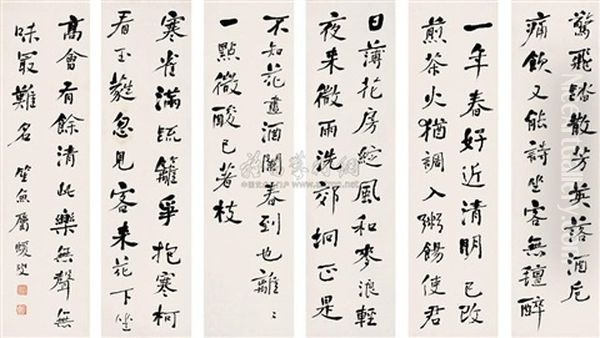 驚飛踏散芳英落酒卮
痛飲又能詩坐客無氊醉
一年春好近清明已改
煎茶火猶調入粥餳使君
日薄花房綻風和麥浪輕
夜來微雨洗郊坰正是
不知花盡酒闌春到也離〻
一點微酸已著枝
寒雀滿疏籬爭抱寒柯
看玉蕤忽見客來花下坐
高會有餘清此樂無聲無
味最難名 笙魚屬